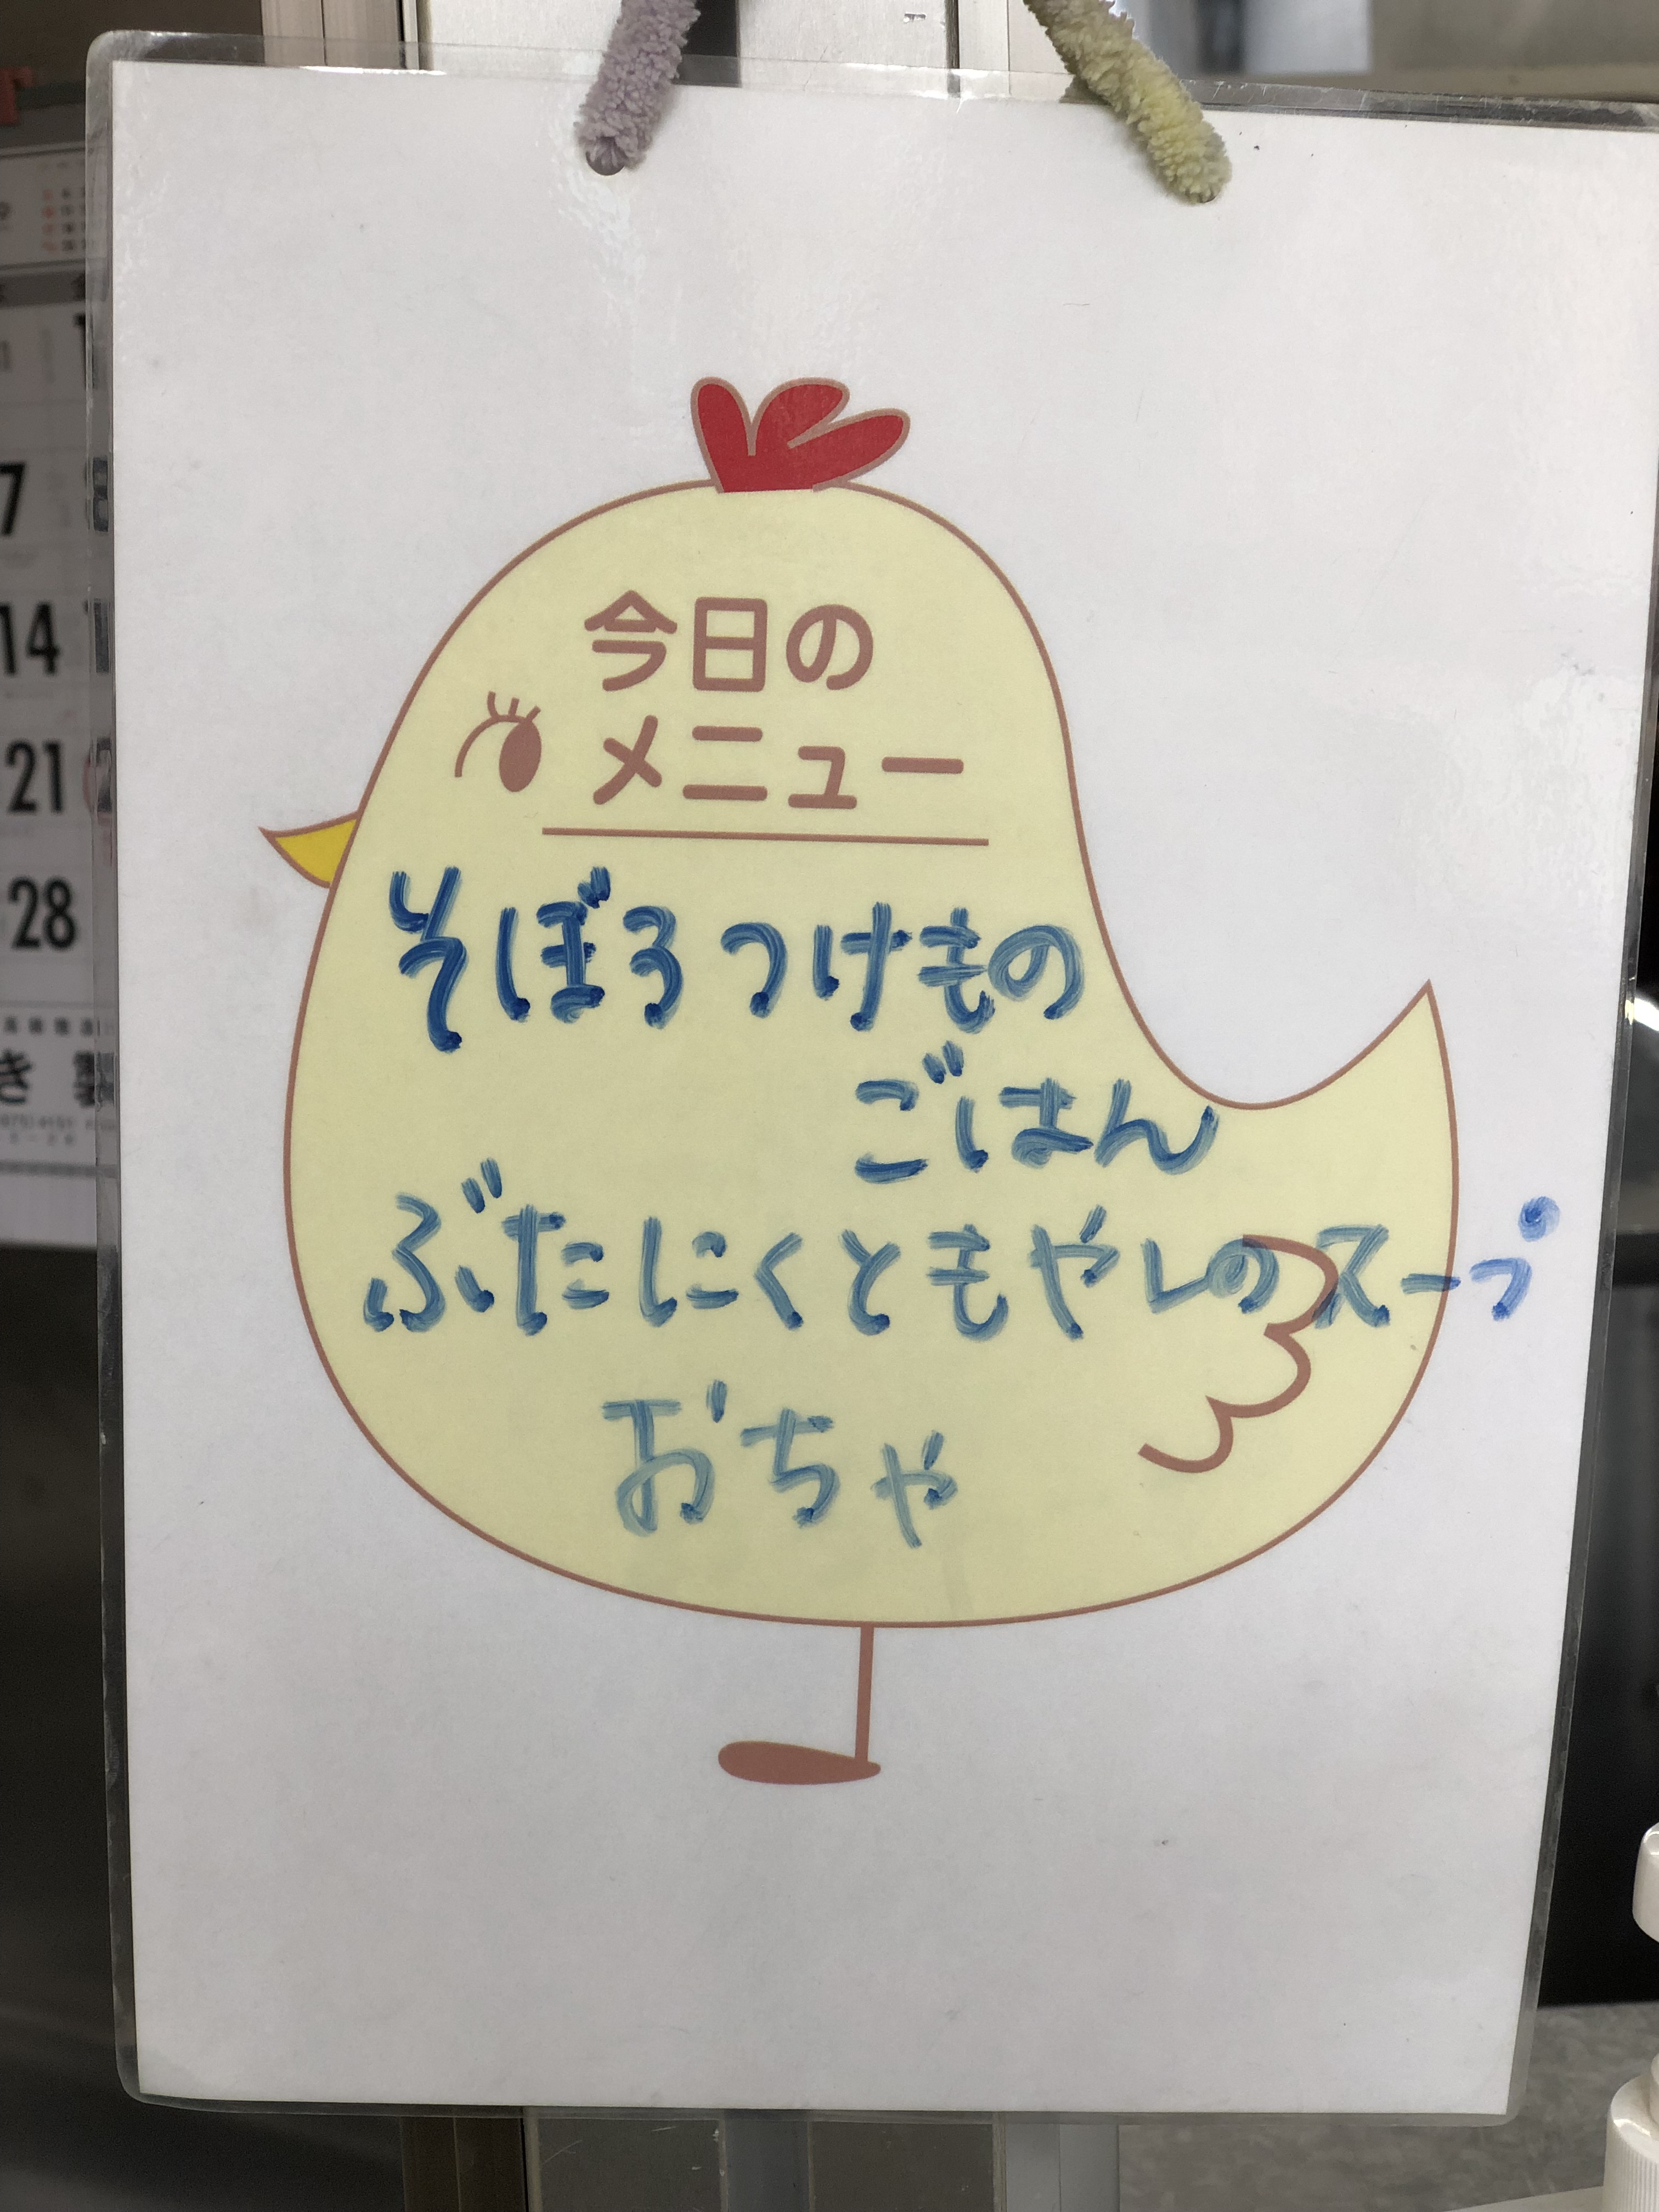 今日の
メニュー
そぼろつけもの
ごはん
ぶたにくともやしのスープ
おちゃ
7
14
21
28
き製